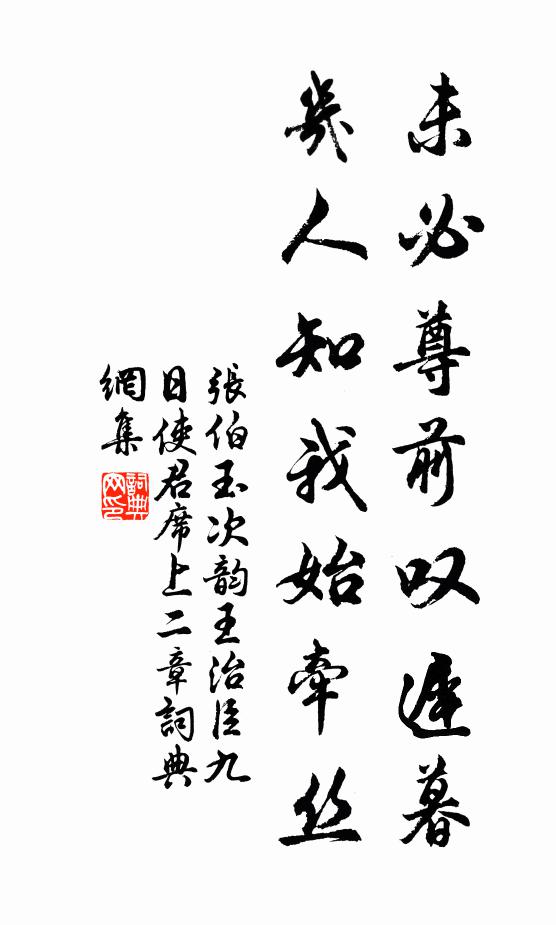 未必尊前叹遲暮
幾人知我始牽丝
張伯玉次韵王治臣九
日使君席上二章詞典
網集
詞典
网印